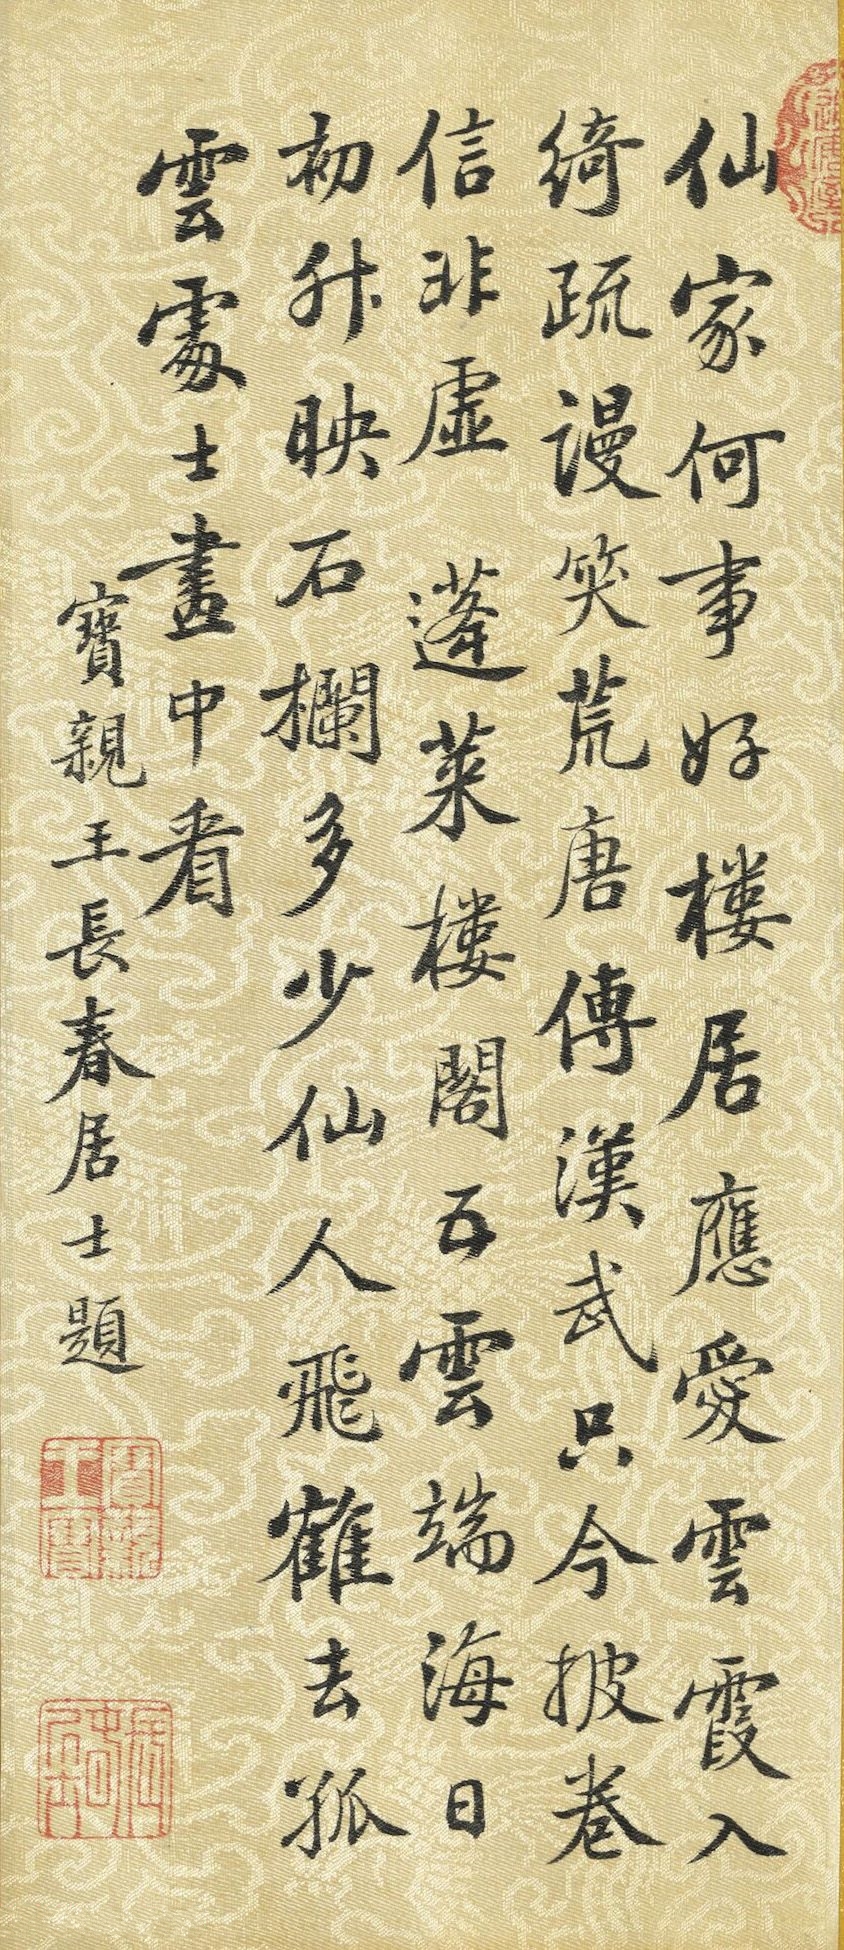 仙家何事好樓居應愛雲霞入
綺疏謾笑荒唐傳漢武只今披卷
信非虛 蓬萊樓閣五雲端海日
初升映石欄多少仙人飛鶴去孤
雲處士畫中看
寶親王長春居士題
寶親王寶
長春居士